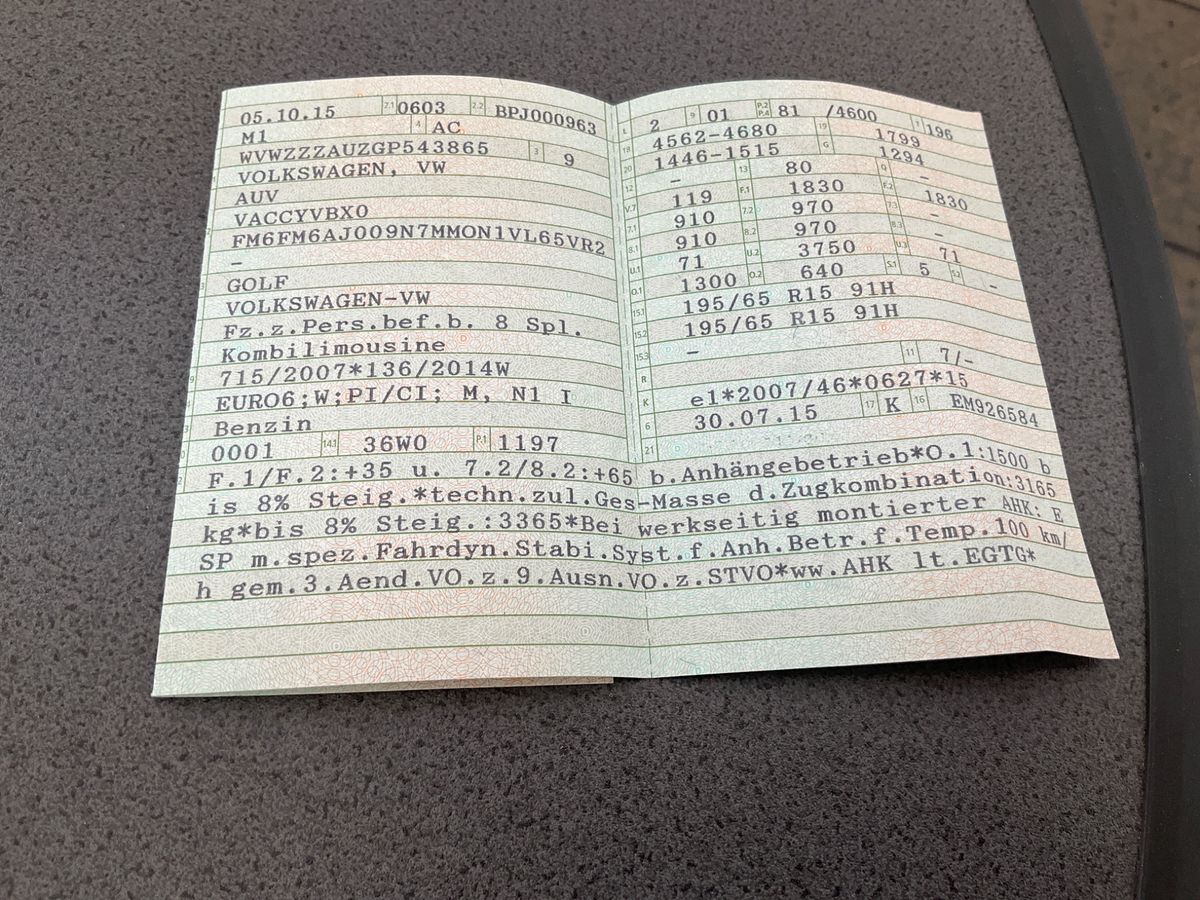 05.10.15 2.1 0603 2.2 BPJ000963
M1 4 AC
WVWZZZAUZGP543865 3 9
VOLKSWAGEN, VW
AUV
VACCYVBX0
FM6FM6AJ009N7MMON1VL65VR2
–
GOLF
VOLKSWAGEN-VW
Fz.z.Pers.bef.b. 8 Spl.
Kombilimousine
715/2007*136/2014W
EURO6;W;PI/CI; M, N1 I
Benzin
0001 14.1 36W0 P.1 1197
L 2 9 01 P.2 P.4 81 /4600 T 196
18 4562-4680 19 1799
20 1446-1515 G 1294
12 – 13 80 Q –
V.7 119 F.1 1830 F.2 1830
7.1 910 7.2 970 7.3 –
8.1 910 8.2 970 8.3 –
U.1 71 U.2 3750 U.3 71
O.1 1300 O.2 640 S.1 5 S.2 –
15.1 195/65 R15 91H
15.2 195/65 R15 91H
15.3 –
R 11 7/-
K e1*2007/46*0627*15
6 30.07.15 17 K 16 EM926584
21
F.1/F.2:+35 u. 7.2/8.2:+65 b.Anhängebetrieb*O.1:1500 b
is 8% Steig.*techn.zul.Ges-Masse d.Zugkombination:3165
kg*bis 8% Steig.:3365*Bei werkseitig montierter AHK: E
SP m.spez.Fahrdyn.Stabi.Syst.f.Anh.Betr.f.Temp.100 km/
h gem.3.Aend.VO.z.9.Ausn.VO.z.STVO*ww.AHK lt.EGTG*